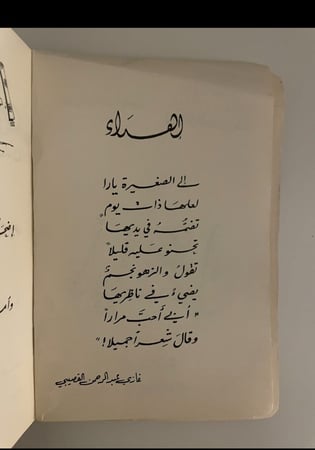 الإهداء
إلى الصغيرة يارا
لعلها ذات يوم
تضمّه في يديها
تحنو عليه قليلاً
تقولُ والزهو نجمٌ
يضيء في ناظريها
"أبي أحبَّ مراراً
وقال شعراً جميلا!"
غازي عبد الرحمن القصيبي